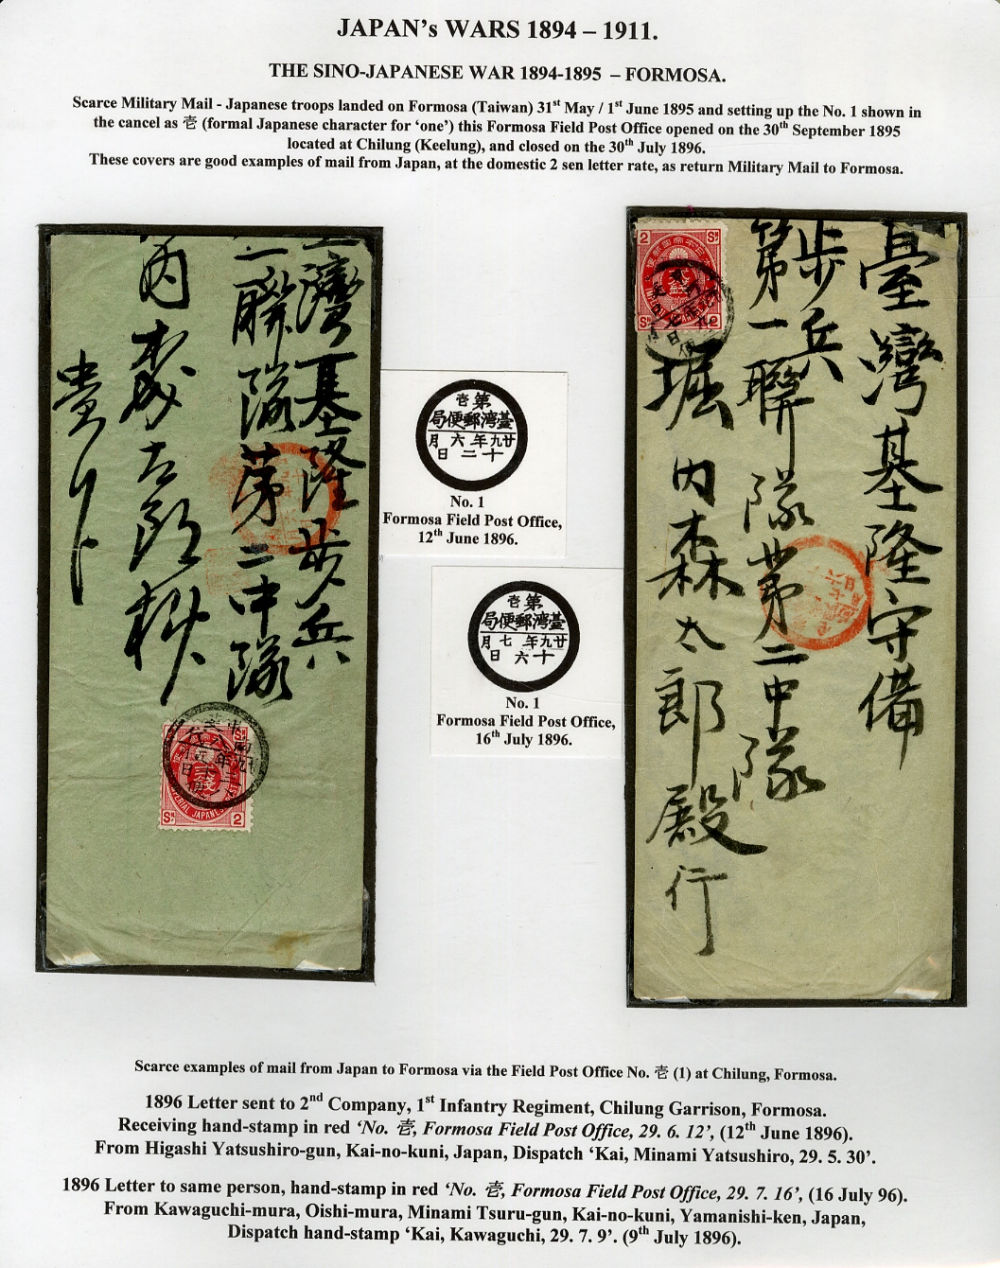 JAPAN's WARS 1894 – 1911.
THE SINO-JAPANESE WAR 1894-1895 – FORMOSA.
Scarce Military Mail - Japanese troops landed on Formosa (Taiwan) 31st May / 1st June 1895 and setting up the No. 1 shown in
the cancel as 壱 (formal Japanese character for 'one') this Formosa Field Post Office opened on the 30th September 1895
located at Chilung (Keelung), and closed on the 30th July 1896.
These covers are good examples of mail from Japan, at the domestic 2 sen letter rate, as return Military Mail to Formosa.
灣基隆歩兵
一聯隊第二中隊
内森太郎様
SN 2
第
壱
臺湾郵便局
廿九年六月
十二日
No. 1
Formosa Field Post Office,
12th June 1896.
第
壱
臺湾郵便局
廿九年七月
十六日
No. 1
Formosa Field Post Office,
16th July 1896.
臺灣基隆守備
歩兵
第一聯隊第二中隊
堀内森太郎殿行
2 SN
SN 2
Scarce examples of mail from Japan to Formosa via the Field Post Office No. 壱 (1) at Chilung, Formosa.
1896 Letter sent to 2nd Company, 1st Infantry Regiment, Chilung Garrison, Formosa.
Receiving hand-stamp in red 'No. 壱, Formosa Field Post Office, 29. 6. 12', (12th June 1896).
From Higashi Yatsushiro-gun, Kai-no-kuni, Japan, Dispatch 'Kai, Minami Yatsushiro, 29. 5. 30'.
1896 Letter to same person, hand-stamp in red 'No. 壱, Formosa Field Post Office, 29. 7. 16', (16 July 96).
From Kawaguchi-mura, Oishi-mura, Minami Tsuru-gun, Kai-no-kuni, Yamanishi-ken, Japan,
Dispatch hand-stamp 'Kai, Kawaguchi, 29. 7. 9'. (9th July 1896).